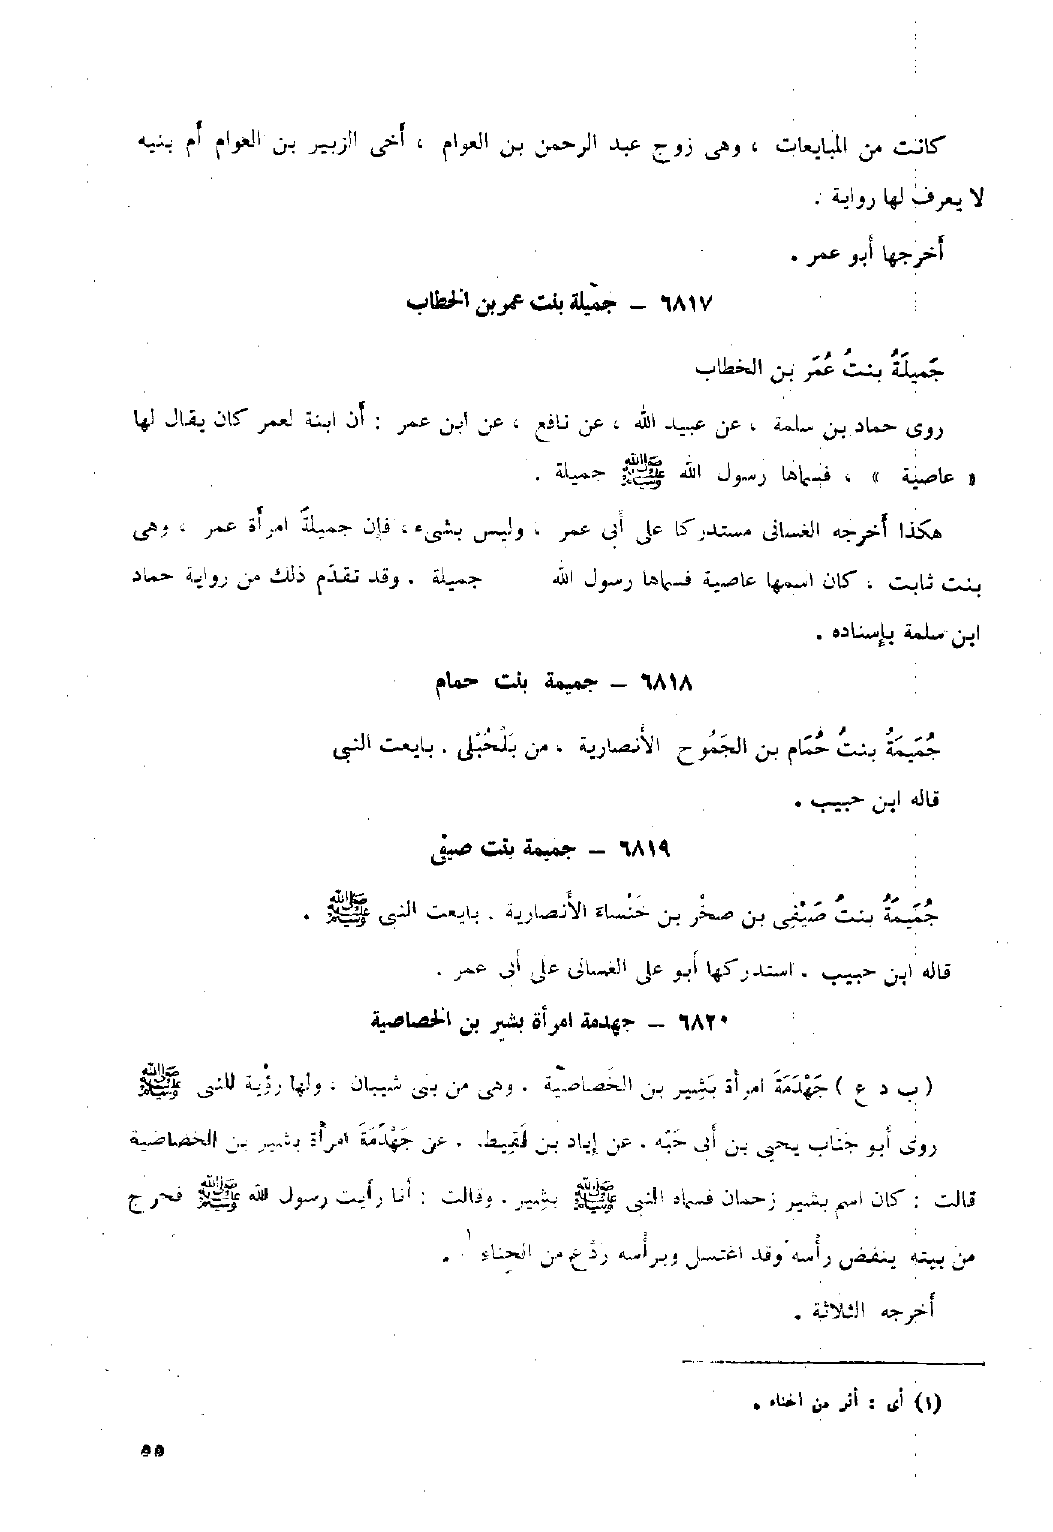 كانت من المبايعات ، وهى زوج عبد الرحمن بن العوام ، أخى الزبير بن العوام أم بنيه
لا يعرف لها رواية .
أخرجها أبو عمر .
٦٨١٧ – جميلة بنت عمر بن الخطاب
جَميلَةُ بنتُ عُمَر بن الخطاب
روى حماد بن سلمة ، عن عبيد الله ، عن نافع ، عن ابن عمر : أن ابنة لعمر كان يقال لها
« عاصية » ، فسماها رسول الله ﷺ جميلة .
هكذا أخرجه الغسانى مستدركا على أبى عمر ، وليس بشىء ، فإن جميلةَ امرأة عمر ، وهى
بنت ثابت ، كان اسمها عاصية فسماها رسول الله جميلة . وقد تقدّم ذلك من رواية حماد
ابن سلمة بإسناده .
٦٨١٨ – جميمة بنت حمام
جُمَيمَةُ بنتُ حُمَام بن الجَمُوح الأنصارية ، من بَلْحُبْلى . بايعت النبى
قاله ابن حبيب .
٦٨١٩ – جميمة بنت صيفى
جُمَيمَةُ بنتُ صَيْفِى بن صخْر بن خَنْساء الأنصارية . بايعت النبى ﷺ .
قاله ابن حبيب . استدركها أبو على الغسانى على أبى عمر .
٦٨٢٠ – جهدمة امرأة بشير بن الخصاصية
( ب د ع ) جَهْدَمَةَ امرأة بَشِير بن الخَصاصيّة . وهى من بنى شيبان ، ولها رؤْية للنبى ﷺ
روى أبو جناب يحيى بن أبى حَيّه . عن إياد بن لَقِيط. . عن جَهْدَمَةَ امرأة بشير بن الخصاصية
قالت : كان اسم بشير زحمان فسماه النبى ﷺ بشِير . وقالت : أنا رأيت رسول الله ﷺ فخرج
من بيته ينفض رأسه وقد اغتسل وبرأسه ردْع من الحناء ١ .
أخرجه الثلاثة .
(١) أى : أثر من الحناء .
٥٥